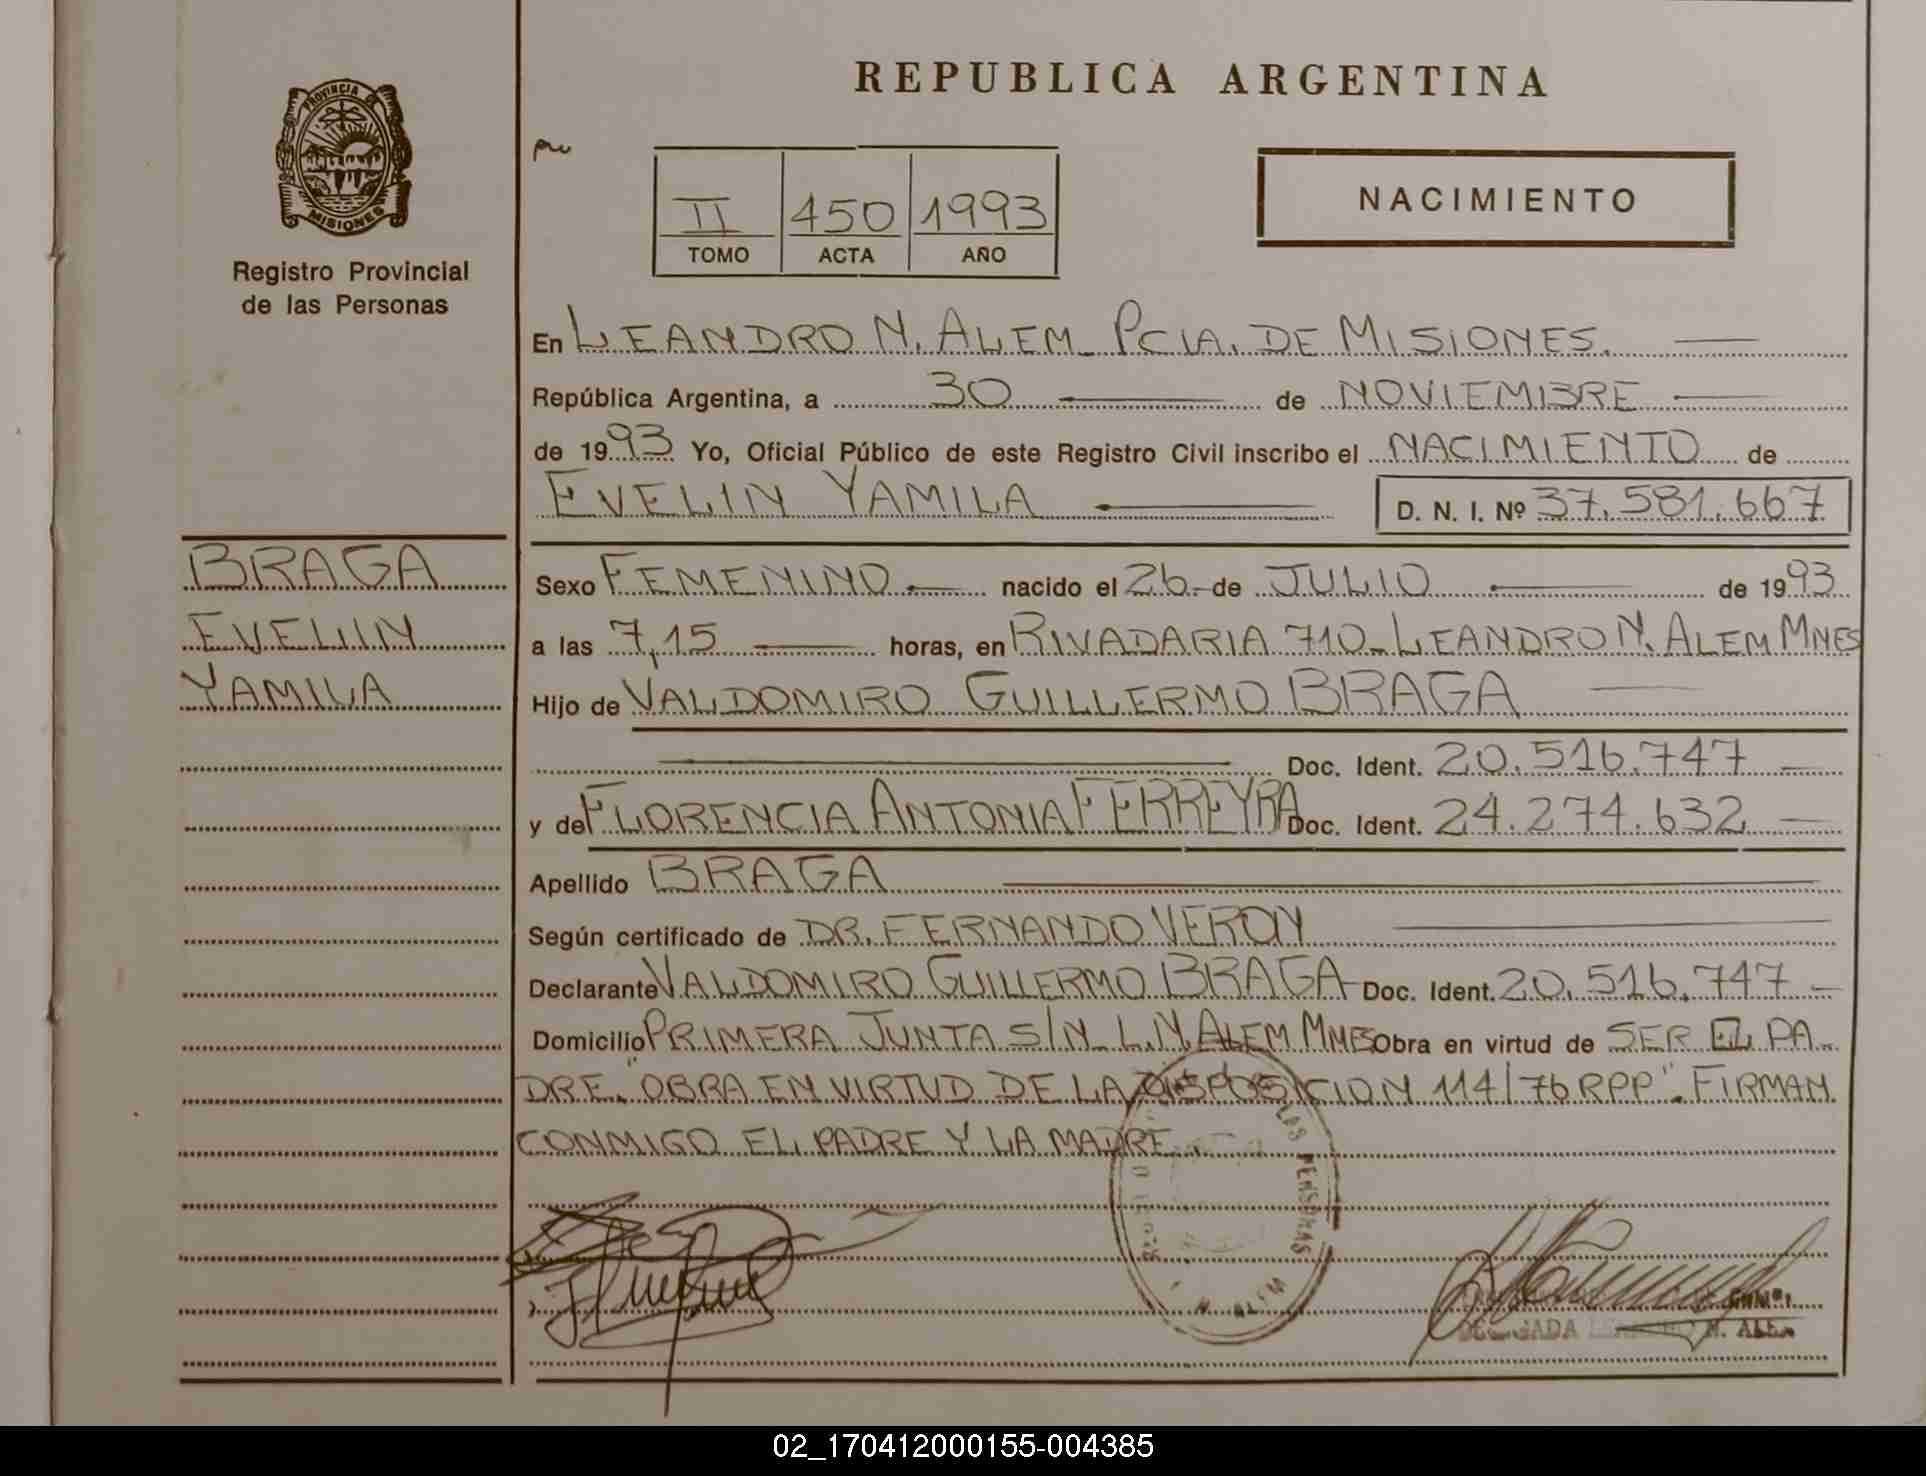 PROVINCIA DE
MISIONES
Registro Provincial
de las Personas
BRAGA
EVELIN
YAMILA
REPUBLICA ARGENTINA
II 450 1993
TOMO ACTA AÑO
NACIMIENTO
En LEANDRO N. ALEM PCIA. DE MISIONES.
República Argentina, a 30 de NOVIEMBRE
de 1993 Yo, Oficial Público de este Registro Civil inscribo el NACIMIENTO de
EVELIN YAMILA D. N. I. Nº 37.581.667
Sexo FEMENINO nacido el 26 de JULIO de 1993
a las 7,15 horas, en RIVADARIA 710 - LEANDRO N. ALEM MNES
Hijo de VALDOMIRO GUILLERMO BRAGA
Doc. Ident. 20.516.747
y de FLORENCIA ANTONIA FERREYRA Doc. Ident. 24.274.632
Apellido BRAGA
Según certificado de DR. FERNANDO VERON
Declarante VALDOMIRO GUILLERMO BRAGA Doc. Ident. 20.516.747
Domicilio PRIMERA JUNTA S/N L.N. ALEM MNES Obra en virtud de SER EL PA-
DRE. "OBRA EN VIRTUD DE LA DISPOSICION 114/76 RPP". FIRMAN
CONMIGO EL PADRE Y LA MADRE.
LAS PERSONAS
N. ALEM
02_170412000155-004385